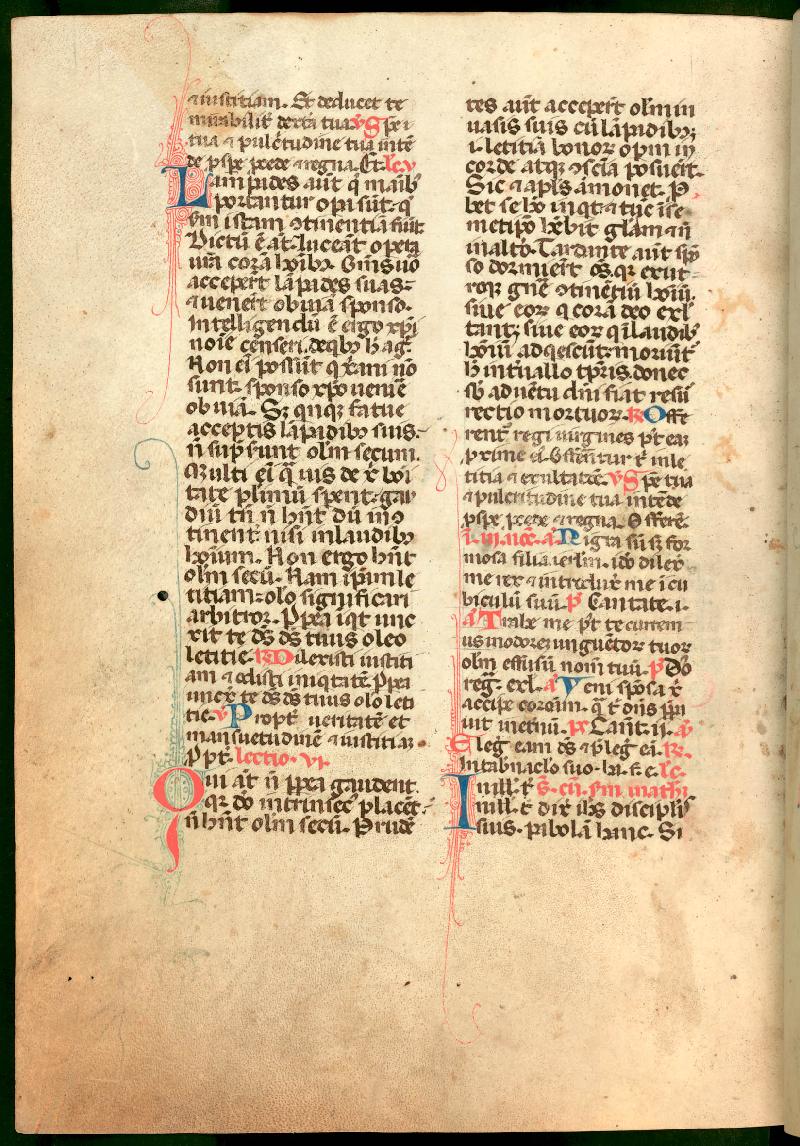 ⁊ iustitiam. Et deducet te
mirabilit᷑ dext̃a tua. v̾ Spei
tua ⁊ pulc̃tudine tua intẽ
de ꝓspe ꝓcede ⁊ regna. Et. le. v
Lampides aut̃ q̃ maĩbȝ
portantur opꝰ sũt. q̃
ẽm istam ↄtinentiã
Dictũ ẽ aĩ. luceãt opera
ur̃a corã hoĩbȝ. Om̃s uõ
acceper̃t lãpides suas.
⁊ uener̃t obuiã sponso.
Intelligendũ ẽ ergo xp̃i
noĩe censeri. de qbȝ h̾ ag̃.
Non eĩ possũt q̃ xani nõ
sunt. sponso xp̃o uenire
obuiã. Sȝ qnqȝ fatue
acceptis lãpidibȝ suis.
ñ sũpsunt olm̃ secum.
Multi eĩ q̃uis de x̃ boĩ
tate plimũ spent. gau
diũ tñ ñ hñt dũ ↄ
tinent nisi in laudibȝ
hoĩum. Non ergo hñt
olm̃ secũ. Nam ip̃m le
titiam. olo significari
arbitror. Pp̃ea iqt unc
xit te ds̃ ds̃ tuus oleo
letitie. R̾ Dilexisti iustiti
am ⁊ odisti iniqtatẽ. Pp̃ea
uncx̃ te ds̃ ds̃ tuus olo leti
tie. v̾ Propt̃ ueritatẽ et
mansuetudinẽ ⁊ iustitiaȝ.
Pp̃t. lectio. vi.
Qui aũt ñ pp̃ea gaudent
qꝛ do intrinsec̾ placẽt.
ñ hñt olm̃ secũ. Prudẽ
tes aũt acceper̃t olm̃ in
uasis suis cũ lãpidibȝ
i. letitiã bonoꝝ opm̃ in
corde atqȝ ↄsc̃ia posuer̃t.
Sic ⁊ apl̃s ãmonet. P
bet se hõ inqt ⁊ tũc ĩ se
metip̃o hẽbit gl̃am ⁊ ñ
in alto. Tardante aũt sp̃o
so dormier̃t oẽs. qꝛ ex ut
roqꝫ gñe ↄtinẽtiũ hoĩũ.
siue eoꝝ q̃ corã deo exl̃
tant; siue eoꝝ q̃ ĩ laudibȝ
hoĩũ adqescũt: moriũt̃
h̾ interuallo tp̃ris. donec
sb̾ aduẽtu dñi fiat resu
rectio mortuoꝝ. R̾ Offe
rent̃ regi uirgines p̃t eaȝ
ꝓxime eĩ offerẽtur t̾ ĩ le
titia ⁊ exultatõe. v̾ Spe tua
⁊ pulcritudine tua intẽde
ꝓspe ꝓcede ⁊ regna. Offerẽt̃.
i. iii. noc̃. ã. Nigra sũ sȝ for
mosa filia ier̃lm. iõ dilex̃
me rex ⁊ introdux̃ me ĩ cu
biculũ suũ. p̾ Cantate. i.
ã. Trahe me p̃t te currem
us ĩ odorem unguẽtoꝝ tuoꝝ
olm̃ effusũ nom̃ tuũ. p̾ Dõ
reg̃. exl̃. ã. Veni spõsa x̃i
accipe coronã. q̃ t̾ dñs p̃pa
uit ĩ et̾nũ. p̾ Cant. ii. v̾
Eleg̃ eam ds̃ ⁊ p̃leg̃ eã. R̾.
In tabnac̃lo suo. ha. f. e. lc̃.
In ill̾. t̾. S. eũ. s̃m math̃.
In ill̾. t̾. dix̃ ihs̃ discipl̃is
suis. pabolã hanc. Si